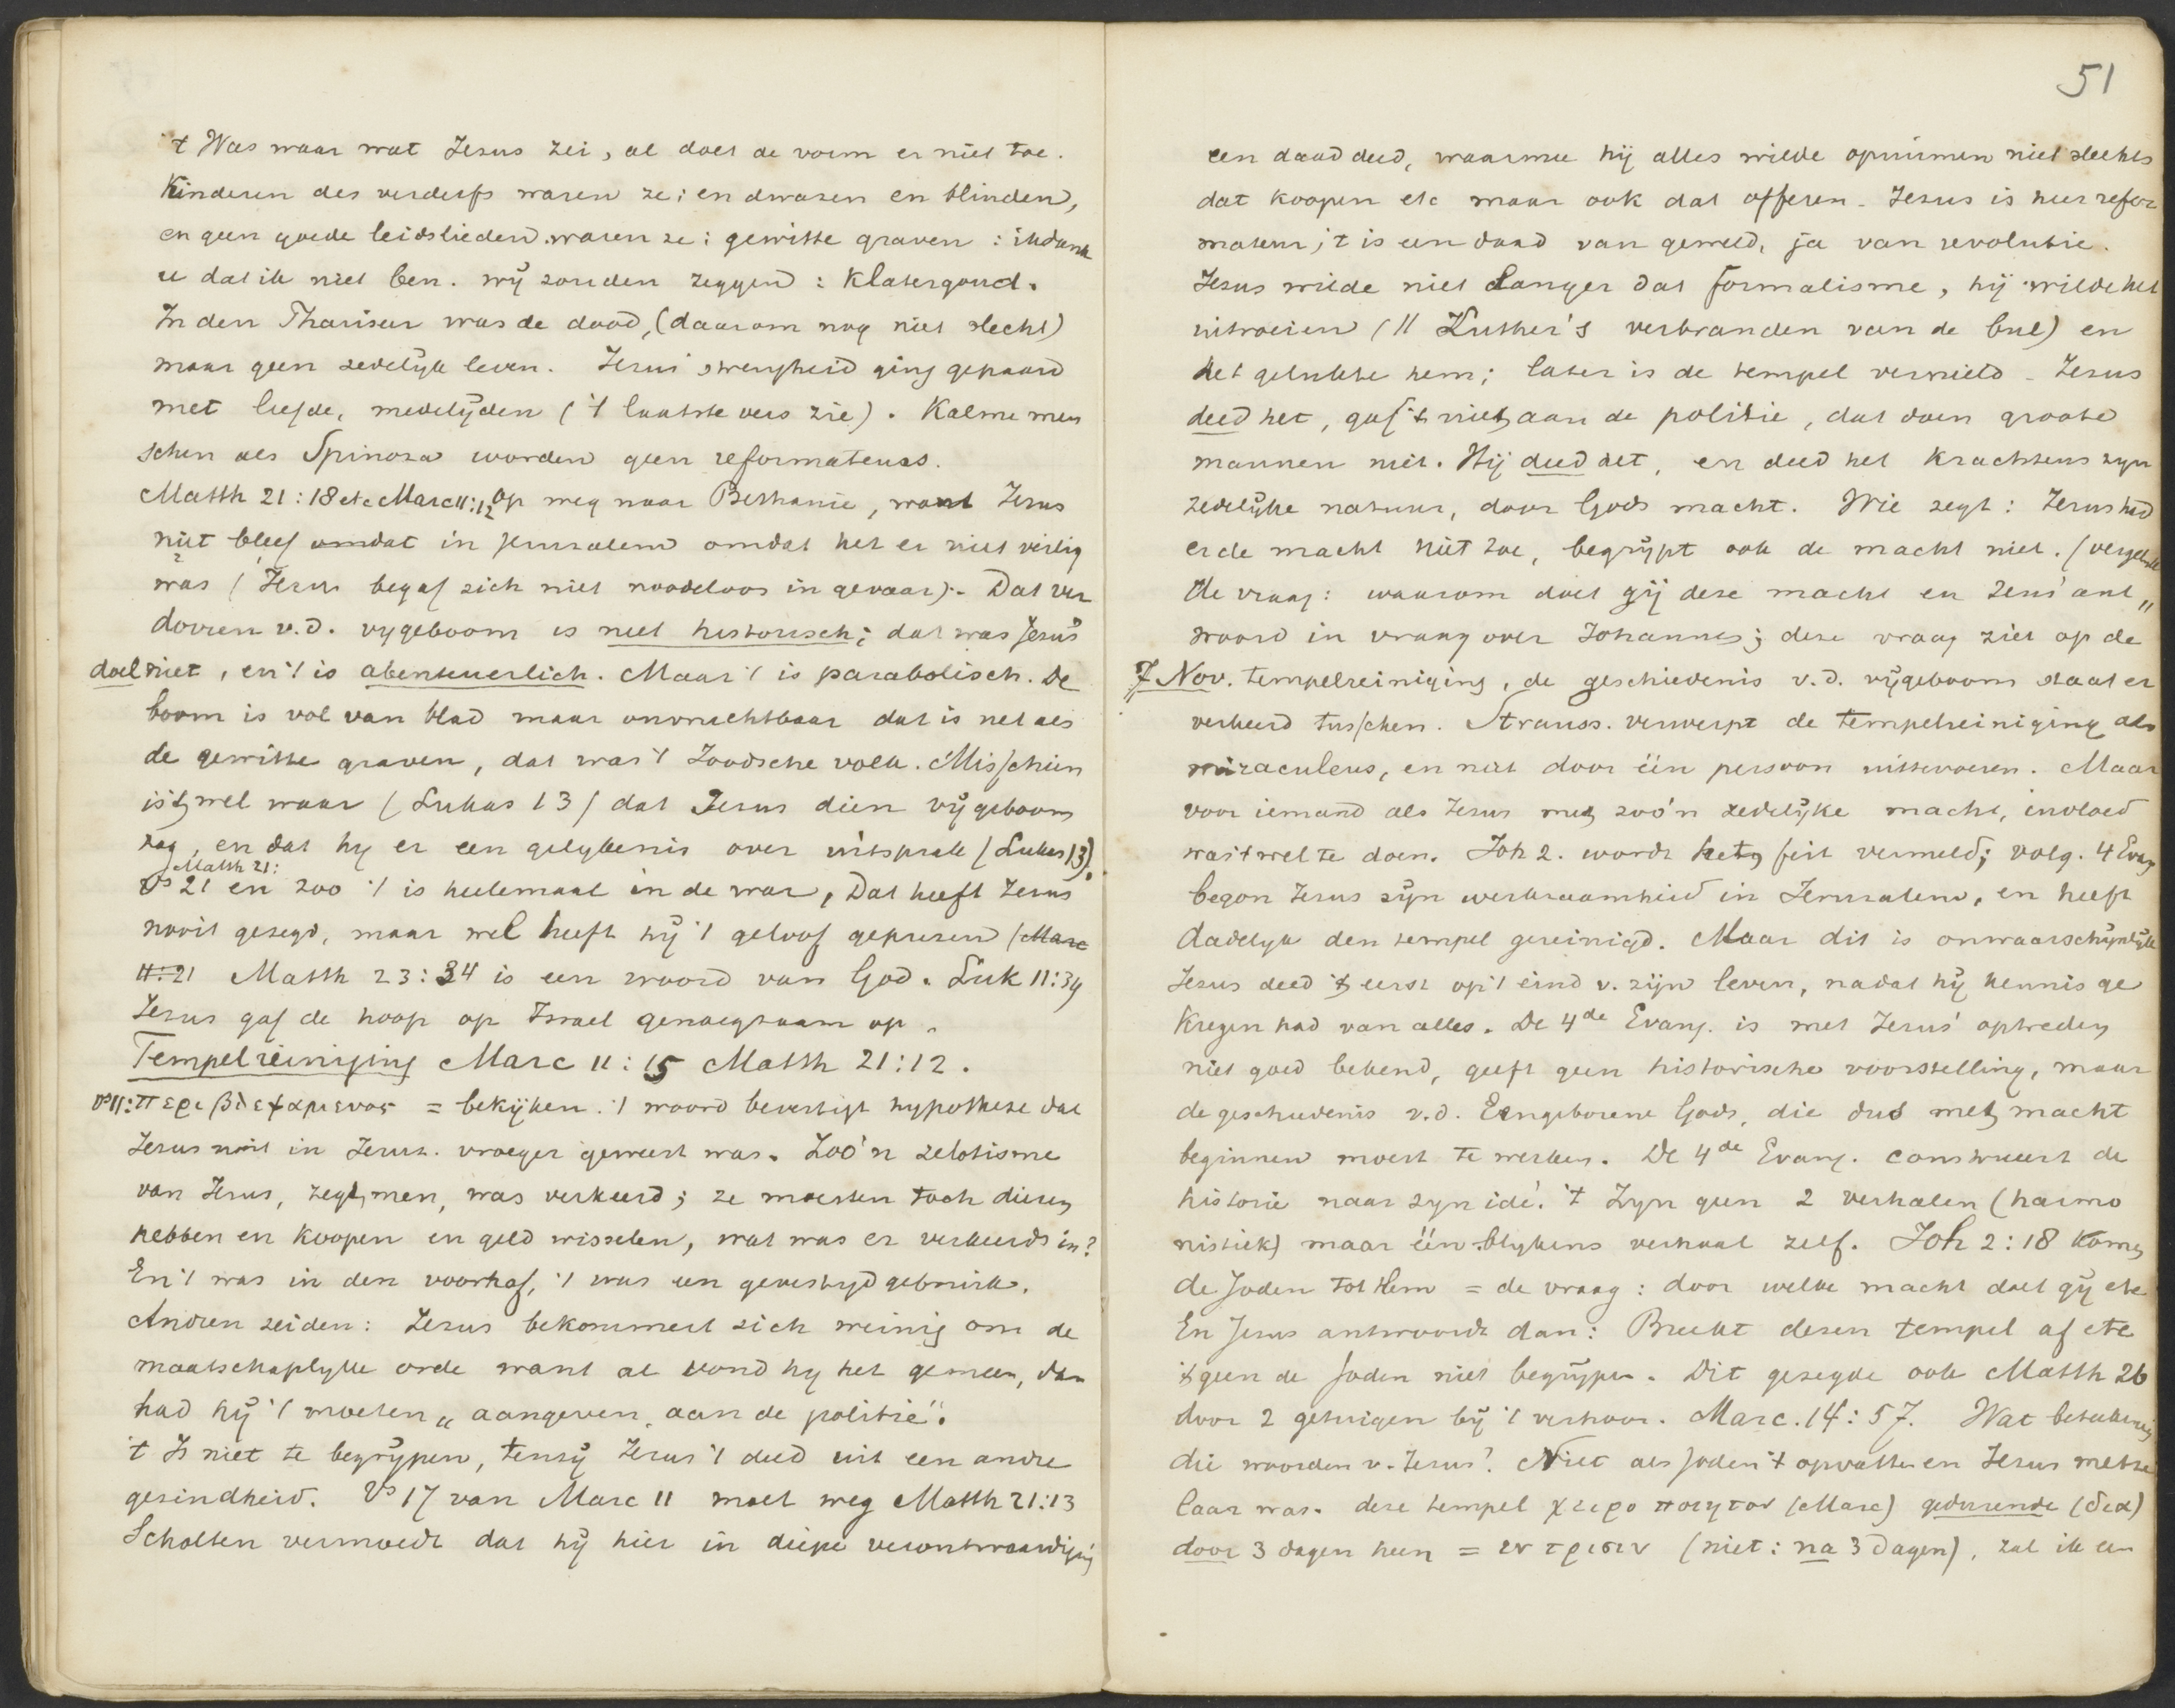 't Was waar wat Jezus zei, al doet de vorm er niet toe.
Kinderen des verderfs waren ze; en dwazen en blinden,
en geen goede leidslieden waren ze; gewitte graven: ik dank
u dat ik niet ben. wij zouden zeggen: Klatergoud.
In den Phariseer was de dood, (daarom nog niet slecht)
maar geen zedelijk leven. Jezus' strengheid ging gepaard
met liefde, medelijden ('t laatste vers zie). Kalme men
schen als Spinoza worden geen reformateurs.
Matth 21:18 etc Marc 11:12 Op weg naar Bethanie, want Jezus
niet bleef omdat in Jeruzalem omdat het er niet veilig
was (Jezus begaf zich niet noodeloos in gevaar). Dat ver
dorren v.d. vygeboom is niet historisch; dat was Jezus'
doel niet, en 't is abenteuerlich. Maar 't is parabolisch. De
boom is vol van blad maar onvruchtbaar dat is net als
de gewitte graven, dat was 't Joodsche volk. Misschien
is 't wel waar (Lukas 13) dat Jezus dien vijgeboom
zag, en dat hy er een gelykenis over uitsprak (Lukas 13).
Matth 21:
Vs 21 en zoo 't is heelemaal in de war, Dat heeft Jezus
nooit gezegd, maar wel heeft hij 't geloof geprezen (Marc
11:21 Matth 23:34 is een woord van God. Luk 11:39
Jezus gaf de hoop op Israel genoegzaam op.
Tempelreiniging Marc 11:15 Matth 21:12.
vs 11: περιβλεψαμενος = bekijken. 't woord bevestigt hypothese dat
Jezus nooit in Jeruz. vroeger geweest was. Zoo'n zelotisme
van Jezus, zegt men, was verkeerd; ze moesten toch dieren
hebben en koopen en geld wisselen, wat was er verkeerds in?
En 't was in den voorhof, 't was een gewettigd gebruik.
Andren zeiden: Jezus bekommert zich weinig om de
maatschaplyke orde want al vond hy het gemeen, dan
had hij 't moeten „aangeven aan de politie".
't Is niet te begrijpen, tenzij Jezus 't deed uit een andre
gezindheid. Vs 17 van Marc 11 moet weg Matth 21:13
Scholten vermoedt dat hij hier in diepe verontwaardiging
51
een daad deed, waarmee hij alles wilde opruimen niet slechts
dat koopen etc maar ook dat offeren. Jezus is hier refor
mateur; 't is een daad van geweld, ja van revolutie.
Jezus wilde niet langer dat formalisme, hij wilde het
uitroeien (// Luther's verbranden van de bul) en
het gelukte hem; later is de tempel vernield. Jezus
deed het, gaf 't niet aan de politie, dat doen groote
mannen niet. Hij deed het, en deed het krachtens zijn
zedelijke natuur, door Gods macht. Wie zegt: Jezus had
er de macht niet toe, begrijpt ook de macht niet. (vergelijk
de vraag: waarom doet gij deze macht en Jezus' ant„
woord in vraag over Johannes; deze vraag ziet op de
7 Nov. tempelreiniging, de geschiedenis v.d. vijgeboom staat er
verkeerd tusschen. Strauss. verwerpt de tempelreiniging als
miraculeus, en niet door één persoon uittevoeren. Maar
voor iemand als Jezus met zoo'n zedelijke macht, invloed
was 't wel te doen. Joh 2. wordt het feit vermeld; volg. 4 Evang
begon Jezus zijn werkzaamheid in Jeruzalem, en heeft
dadelyk den tempel gereinigd. Maar dit is onwaarschijnlijk
Jezus deed 't eerst op 't eind v. zijn leven, nadat hij kennis ge
kregen had van alles. De 4de Evang. is met Jezus' optreden
niet goed bekend, geeft geen historische voorstelling, maar
de geschiedenis v.d. Eengeborene Gods, die dus met macht
beginnen moest te werken. De 4de Evang. construeert de
historie naar zyn idé. 't Zyn geen 2 verhalen (harmo
nistiek) maar één blykens verhaal zelf. Joh 2:18 komen
de Joden tot Hem = de vraag: door welke macht doet gij etc
En Jezus antwoordt dan: Breekt dezen tempel af etc
't geen de Joden niet begrijpen. Dit gezegde ook Matth 26
door 2 getuigen bij 't verhoor. Marc. 14:57. Wat beteekenen
die woorden v. Jezus? Niet als Joden 't opvatten en Jezus metse
laar was. deze tempel χειροποιητον (Marc) gedurende (δια)
door 3 dagen heen = εν τρισιν (niet: na 3 dagen), zal ik een